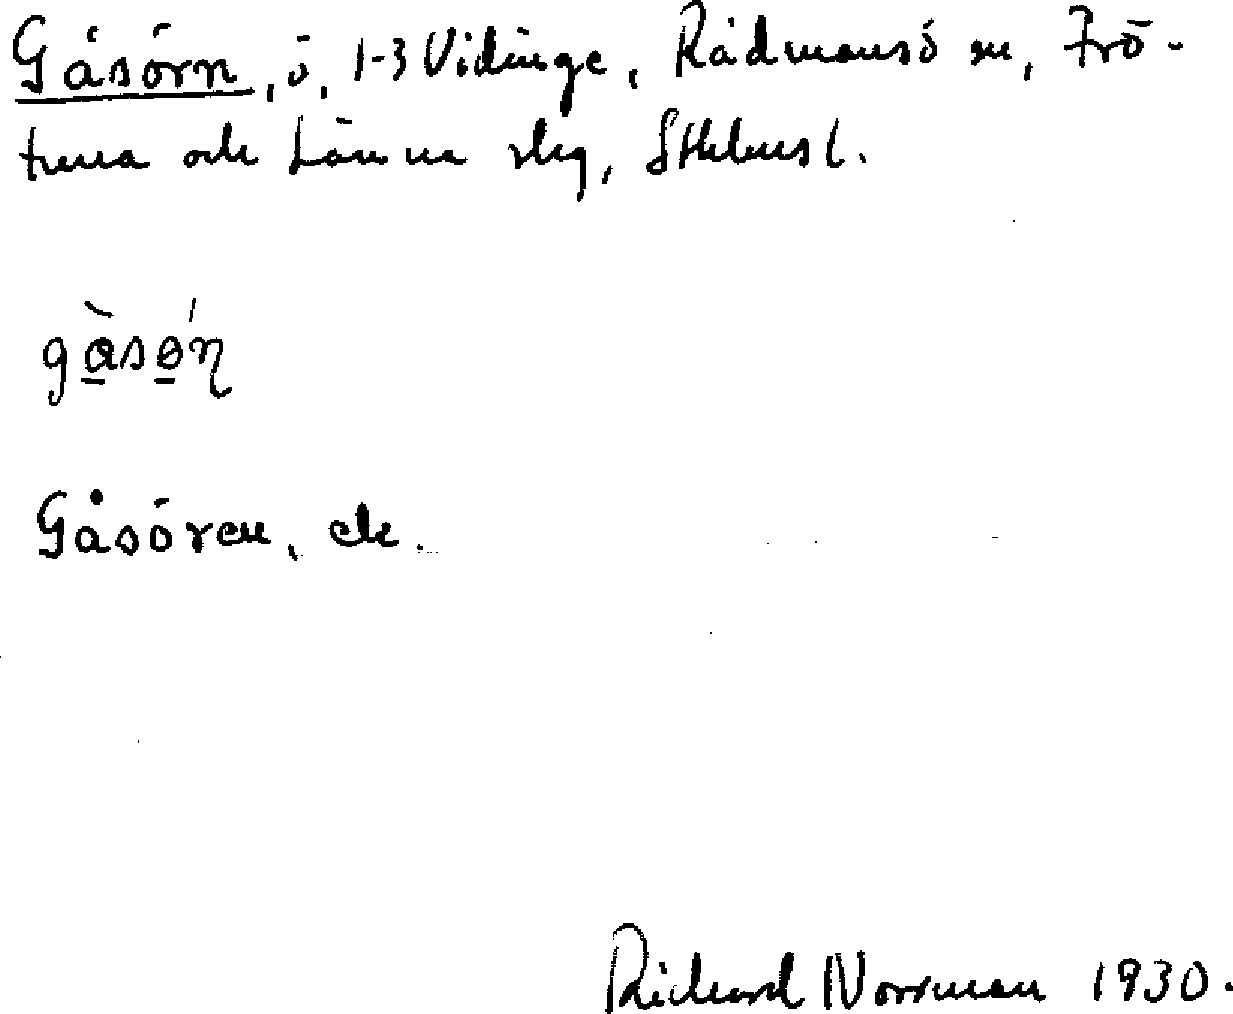 Gåsörn, ö, 1-3 Vidinge, Rådmansö sn, Frö-
tuna och Länna skg, Sthlms l.
gàsǿn
Gåsören, ek.
Richard Norrman 1930.